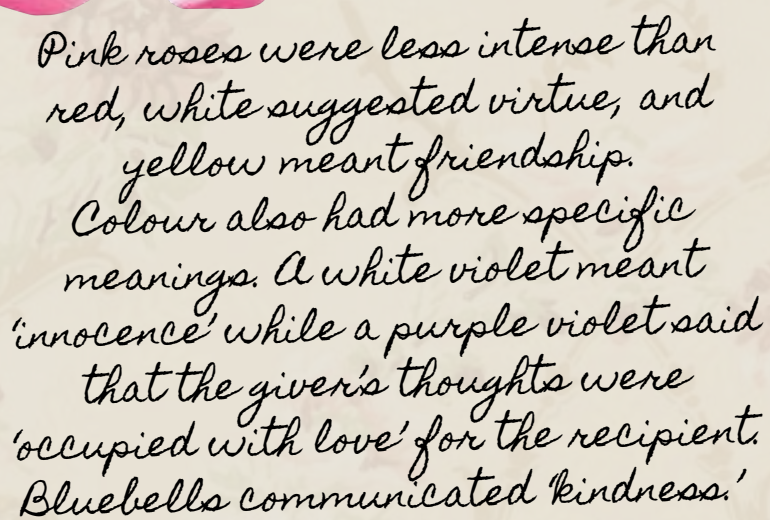 Pink roses were less intense than
red, white suggested virtue, and
yellow meant friendship.
Colour also had more specific
meanings. A white violet meant
'innocence' while a purple violet said
that the giver's thoughts were
'occupied with love' for the recipient.
Bluebells communicated 'kindness.'